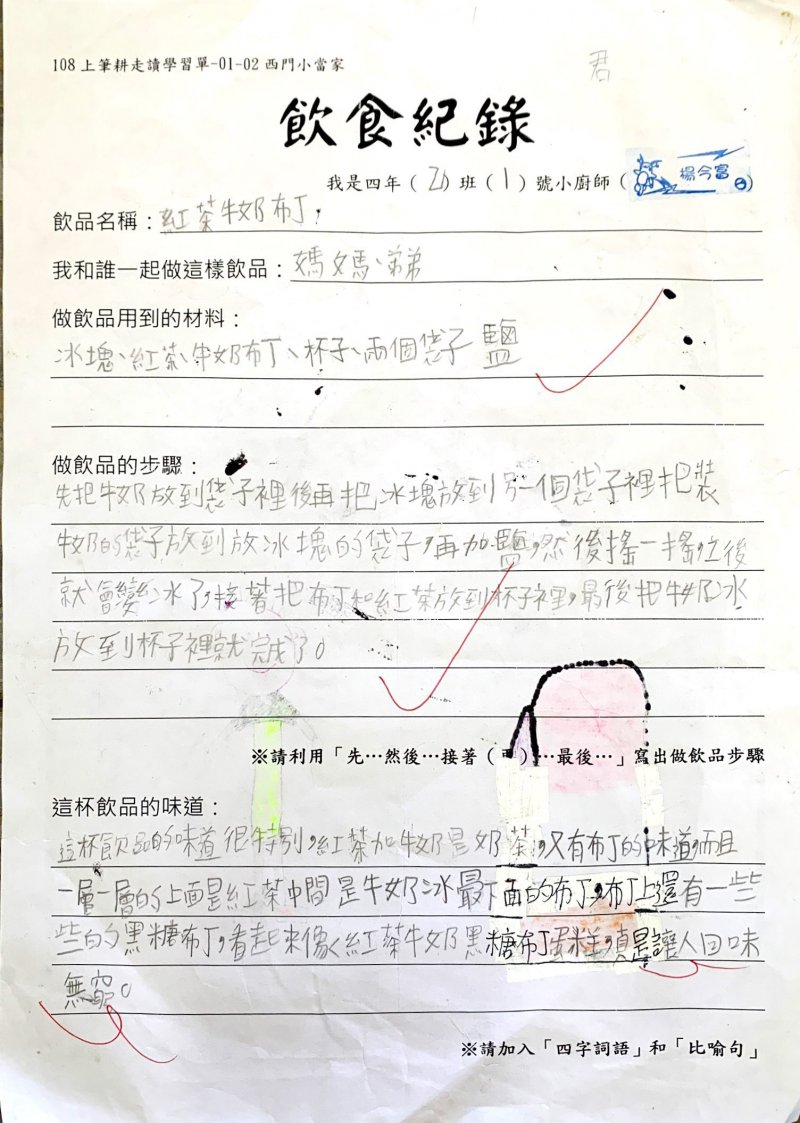 108上筆耕走讀學習單-01-02 西門小當家
君
飲食紀錄
我是四年(乙)班(1)號小廚師(楊今富)
飲品名稱：紅茶牛奶布丁，
我和誰一起做這樣飲品：媽媽、弟弟
做飲品用到的材料：
冰塊、紅茶、牛奶布丁、杯子、兩個袋子 鹽
做飲品的步驟：
先把牛奶放到袋子裡後再把冰塊放到另一個袋子裡把裝
牛奶的袋子放到放冰塊的袋子，再加鹽，然後搖一搖，之後
就會變冰了，接著把布丁和紅茶放到杯子裡，最後把牛奶冰
放到杯子裡就完成了。
※請利用「先…然後…接著（再）…最後…」寫出做飲品步驟
這杯飲品的味道：
這杯飲品的味道很特別，紅茶加牛奶是奶茶，又有布丁的味道，而且
一層一層的上面是紅茶中間是牛奶冰最下面的布丁，布丁上還有一些
些的黑糖布丁，看起來像紅茶牛奶黑糖布丁蛋糕，真是讓人回味
無窮。
※請加入「四字詞語」和「比喻句」